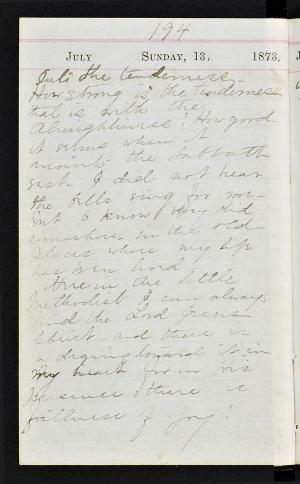 194
JULY SUNDAY, 13. 1873.
the tenderness.
How strong is the tenderness
that is with the
Almightiness! How good
it seems when it
the Sabbath
I did not hear
the bells ring for me.
But I know they did
somewhere in the old
places where my life
has been lived
Here in the little
Methodist I can always
find the Lord Jesus
Christ and there is
a toward it in
my heart for in His
presence there is
fullness of joy!